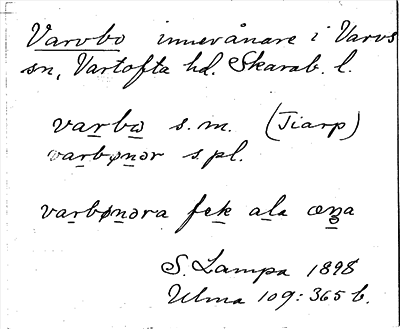 Varvbo innevånare i Varvs
sn, Vartofta hd. Skarab. l.
varbɷ s. m. (Tiarp)
varbønər s. pl.
varbønəra fek ala œŋa
S. Lampa 1898
Ulma 109: 365 b.